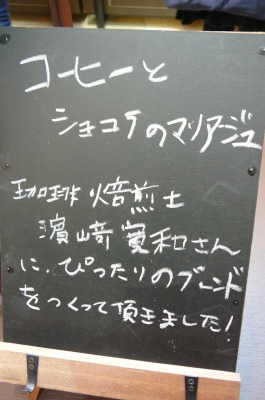 コーヒーと
ショコラのマリアージュ
珈琲焙煎士
濱﨑寛和さん
に、ぴったりのブレンド
をつくって頂きました!